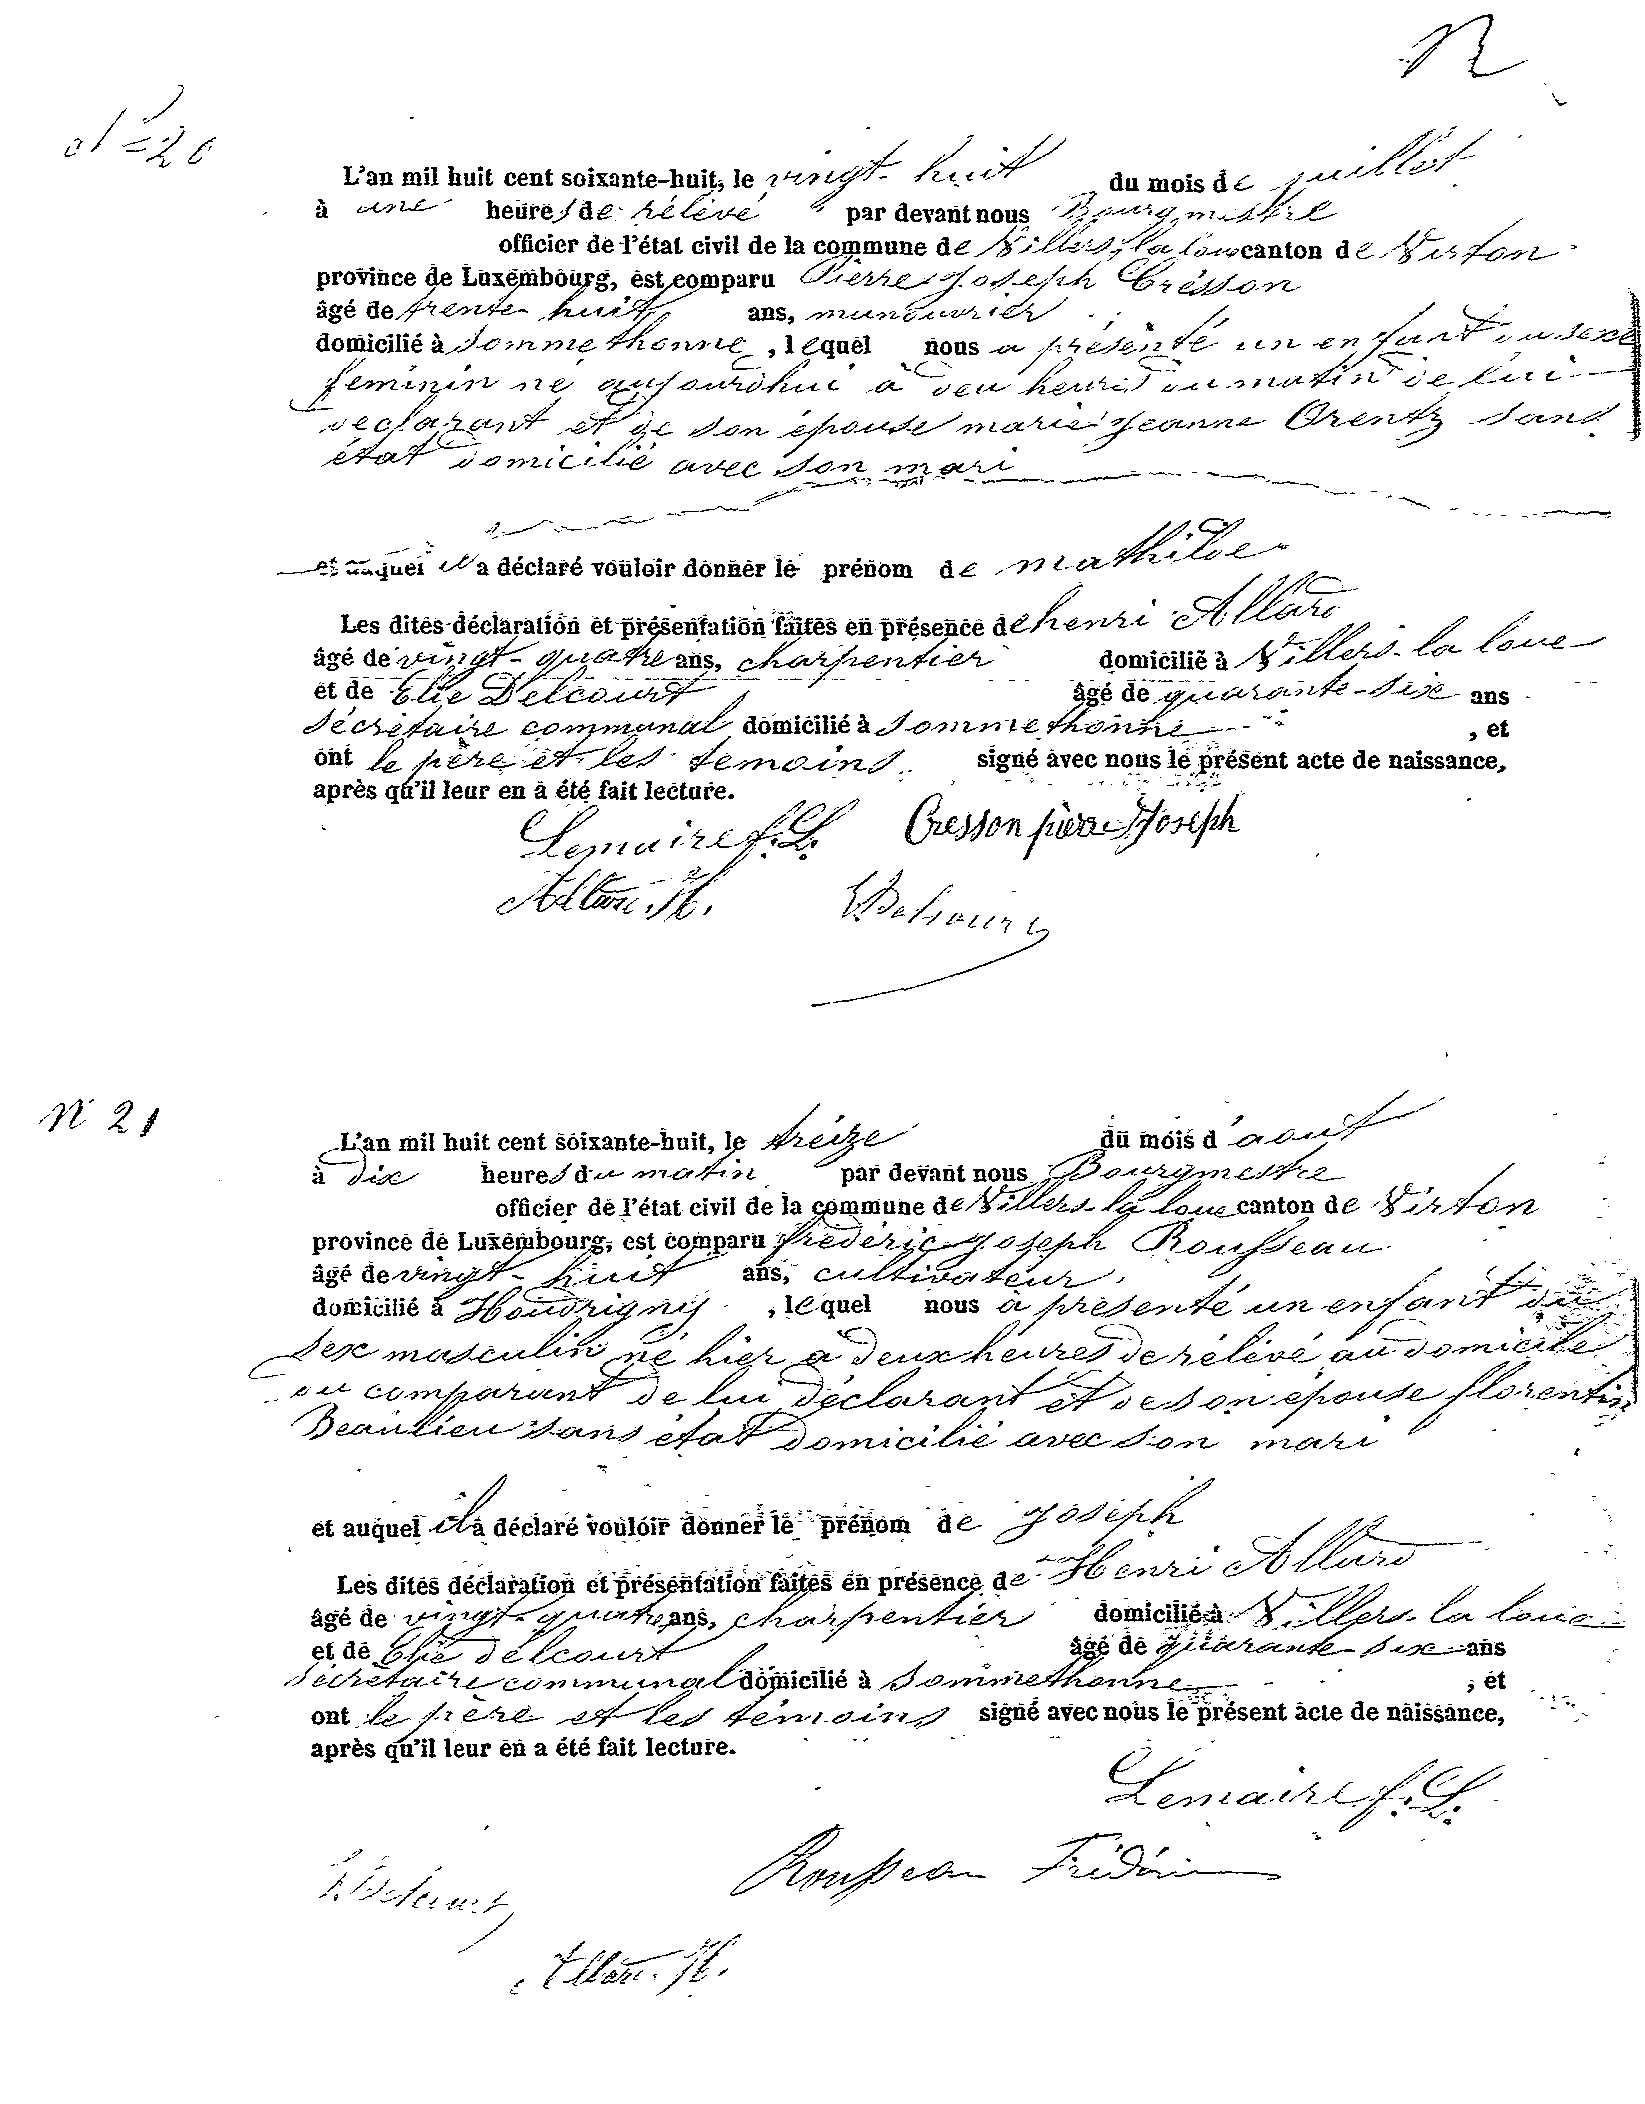 N° 20
L'an mil huit cent soixante-huit, le vingt-huit du mois de juillet
à une heures de rélévé par devant nous Bourgmestre
officier de l'état civil de la commune de Villers-la loue canton de Virton
province de Luxembourg, est comparu Pierre Joseph Crésson
âgé de trente huit ans, manouvrier
domicilié à Sommethonne, lequel nous a présenté un enfant du sexe
feminin né aujourdhui à deu heures du matin de lui
declarant et de son épouse marie Jeanne Orentz sans
état domicilié avec son mari
et auquel il a déclaré vouloir donner le prénom de mathilde
Les dites déclaration et présentation faites en présence de henri Allard
âgé de vingt-quatre ans, charpentier domicilié à Villers-la loue
et de Elie Delcourt âgé de quarante-six ans
sécrétaire communal domicilié à Sommethonne, et
ont le père et les temoins signé avec nous le présent acte de naissance,
après qu'il leur en a été fait lecture.
Lemaire f. L. Cresson piere Joseph
Allard. H. E Delcourt
N 21
L'an mil huit cent soixante-huit, le treize du mois d'aout
à dix heures du matin par devant nous Bourgmestre
officier de l'état civil de la commune de Villers-la loue canton de Virton
province de Luxembourg, est comparu frédéric Joseph Rousseau
âgé de vingt-huit ans, cultivateur
domicilié à Houdrigny, lequel nous à présenté un enfant du
sex masculin né hier à deux heures de rélévé au domicile
du comparant de lui déclarant et de son épouse florentine
Beaulieu sans état domicilié avec son mari
et auquel il a déclaré vouloir donner le prénom de Joseph
Les dites déclaration et présentation faites en présence de Henri Allard
âgé de vingt-quatre ans, charpentier domicilié à Villers-la loue
et de Elie delcourt âgé de quarante-six ans
sécrétaire communal domicilié à Sommethonne, et
ont le père et les témoins signé avec nous le présent acte de naissance,
après qu'il leur en a été fait lecture.
Lemaire f. L.
E. Delcourt Rousseau Frédéric
Allard. H.